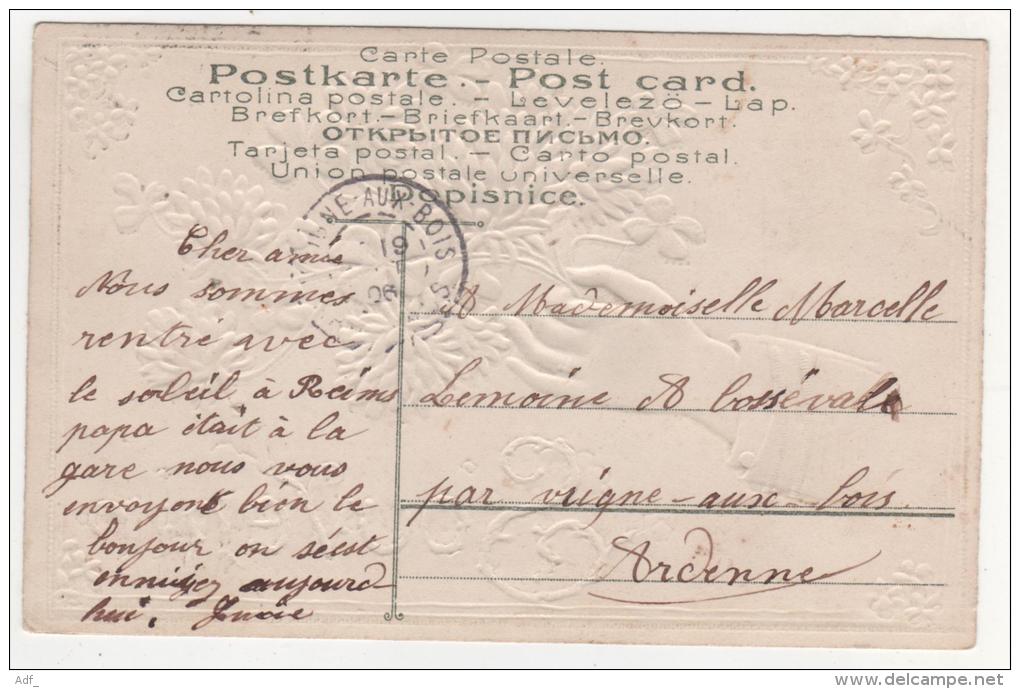 Carte Postale.
Postkarte. - Post card.
Cartolina postale. - Levelező - Lap.
Brefkort.-Briefkaart.-Brevkort.
ОТКРЫТОЕ ПИСЬМО.
Tarjeta postal. - Carto postal.
Union postale universelle.
Dopisnice.
IGNE-AUX-BOIS
19
06
Cher amie
Nous sommes
rentré avec
le soleil à Reims
papa était à la
gare nous vous
envoyons bien le
bonjour on séest
ennuiyez aujourd
hui. Lucie
A Mademoiselle Marcelle
Lemoine A bosséval
par vrigne-aux-bois
Ardenne
Adf_
www.delcampe.net